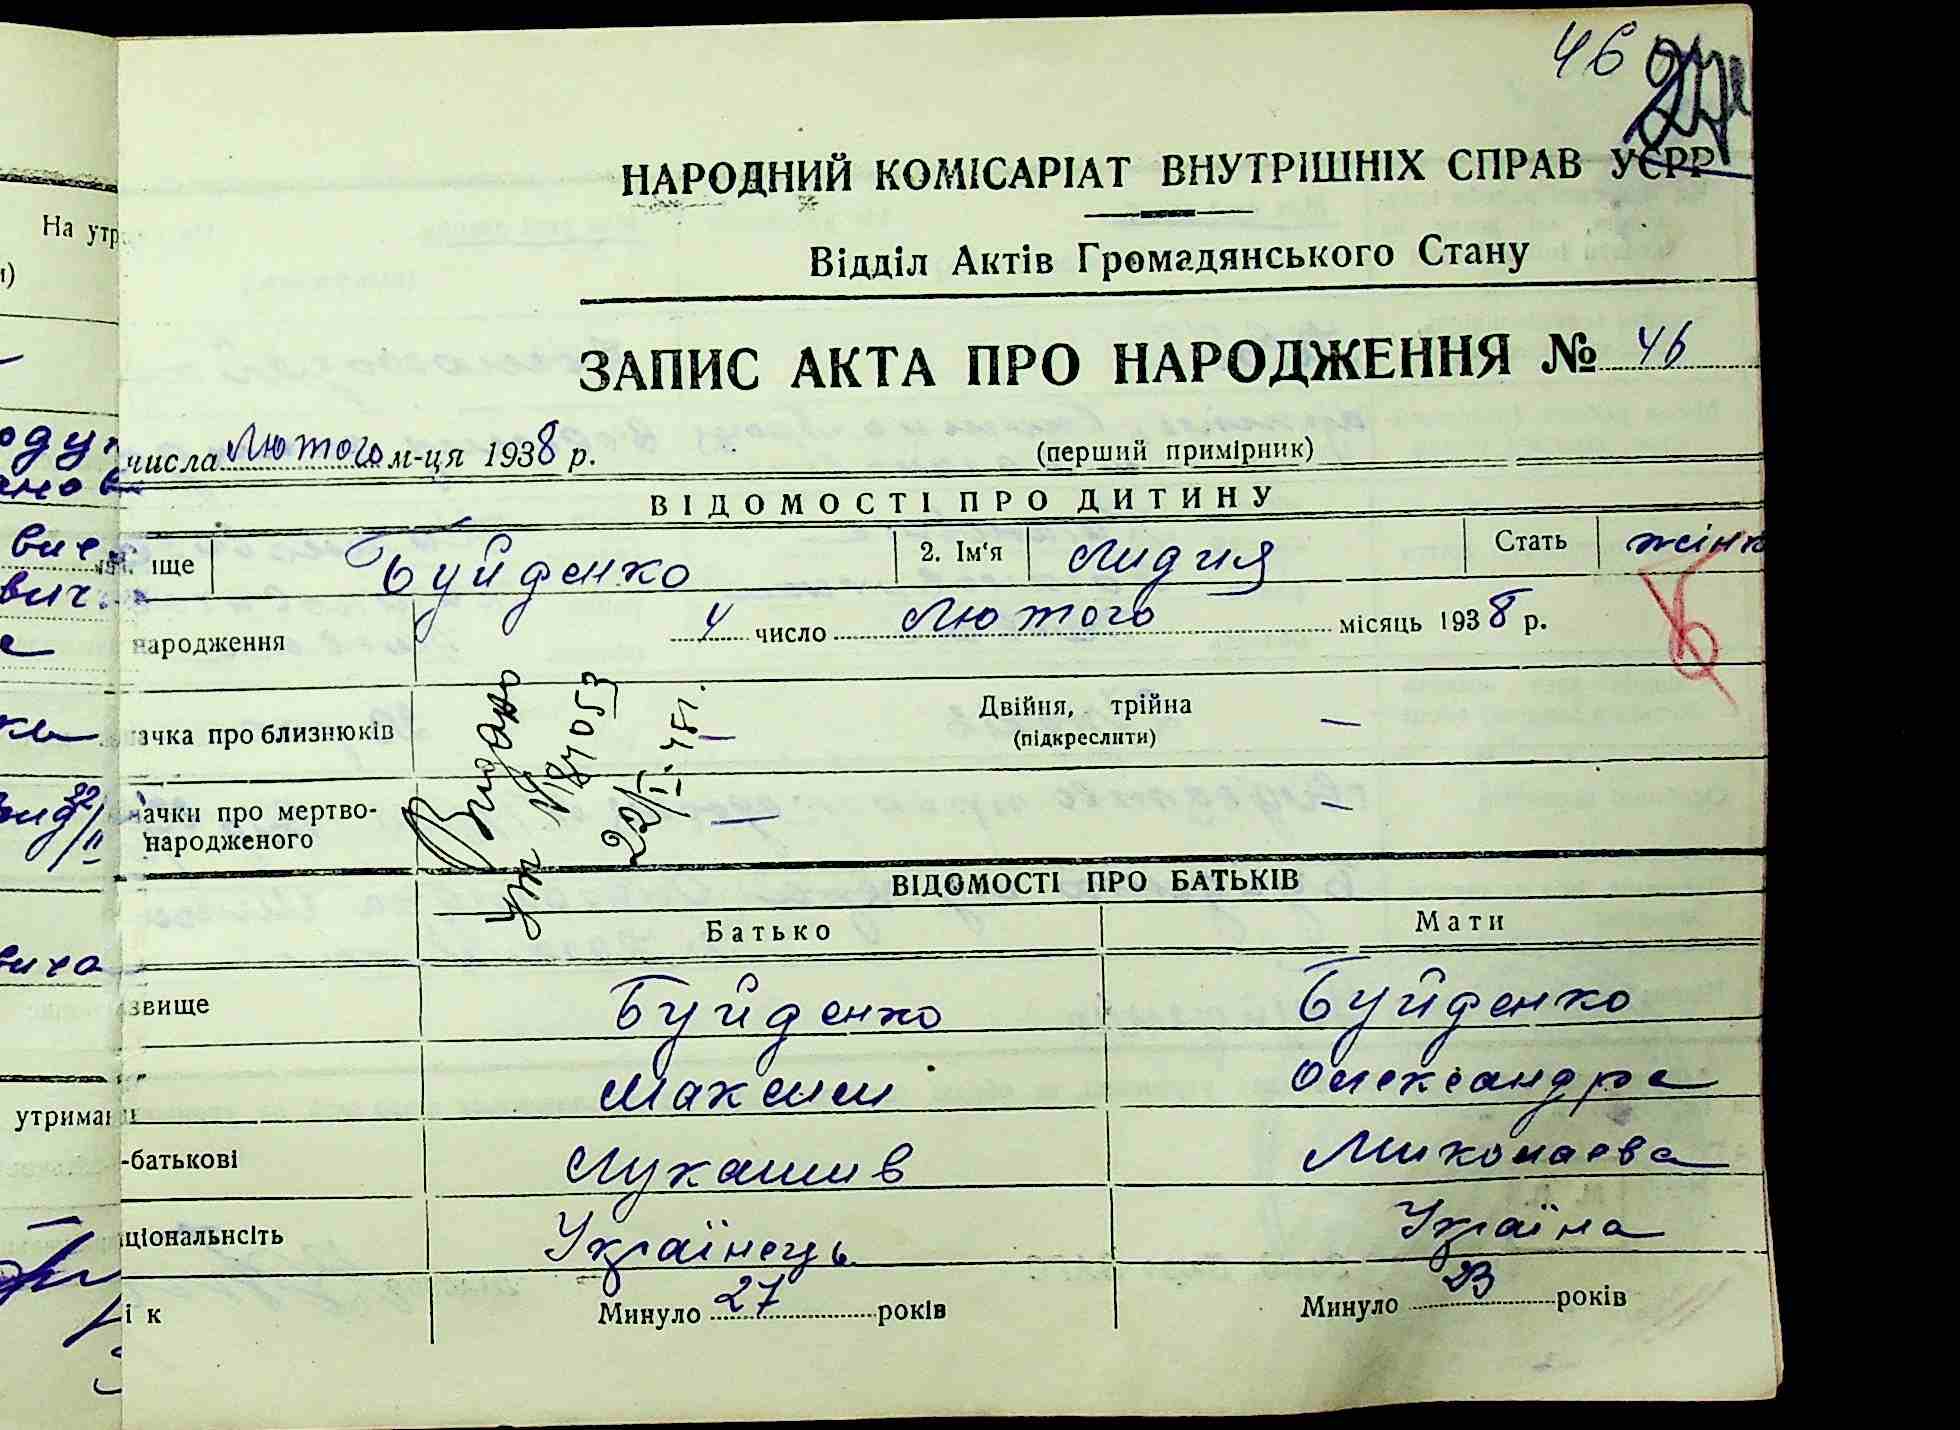 46
НАРОДНИЙ КОМІСАРІАТ ВНУТРІШНІХ СПРАВ УСРР
Відділ Актів Громадянського Стану
ЗАПИС АКТА ПРО НАРОДЖЕННЯ № 46
числа Лютого м-ця 1938 р. (перший примірник)
ВІДОМОСТІ ПРО ДИТИНУ
ище Буйденко 2. Ім'я Лидия Стать жінк
народження 4 число Лютого місяць 1938 р.
ачка про близнюків — Двійня, трійна —
(підкреслити)
ачки про мертво-
народженого — —
Видано
22/II-48 г.
ВІДОМОСТІ ПРО БАТЬКІВ
Батько Мати
звище Буйденко Буйденко
Максим Олександра
-батькові Лукашив Миколаева
ціональнсіть Українець Україна
і к Минуло 27 років Минуло 23 років
На утр
утриман